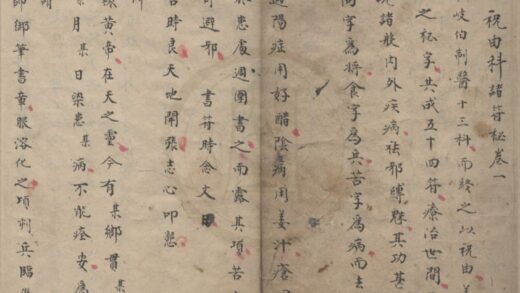 祝由科諸符秘卷一
岐伯制醫十三科而終之以祝由
之秘字共成五十四符療治世間
諸般内外疾病祛邪縛魅其功甚
字爲將食字爲兵苦字爲病而去
遇陽症用好醋陰病用姜汁瘡
於患處週圍書之而露其項苦
可避邪 書符時念文曰
吉時良天地開張志心叩懇
黃帝在天之靈今有某鄉貫某
某月某日染患某病不能痊安爲
即筆書童服溶化之頃刺兵臨